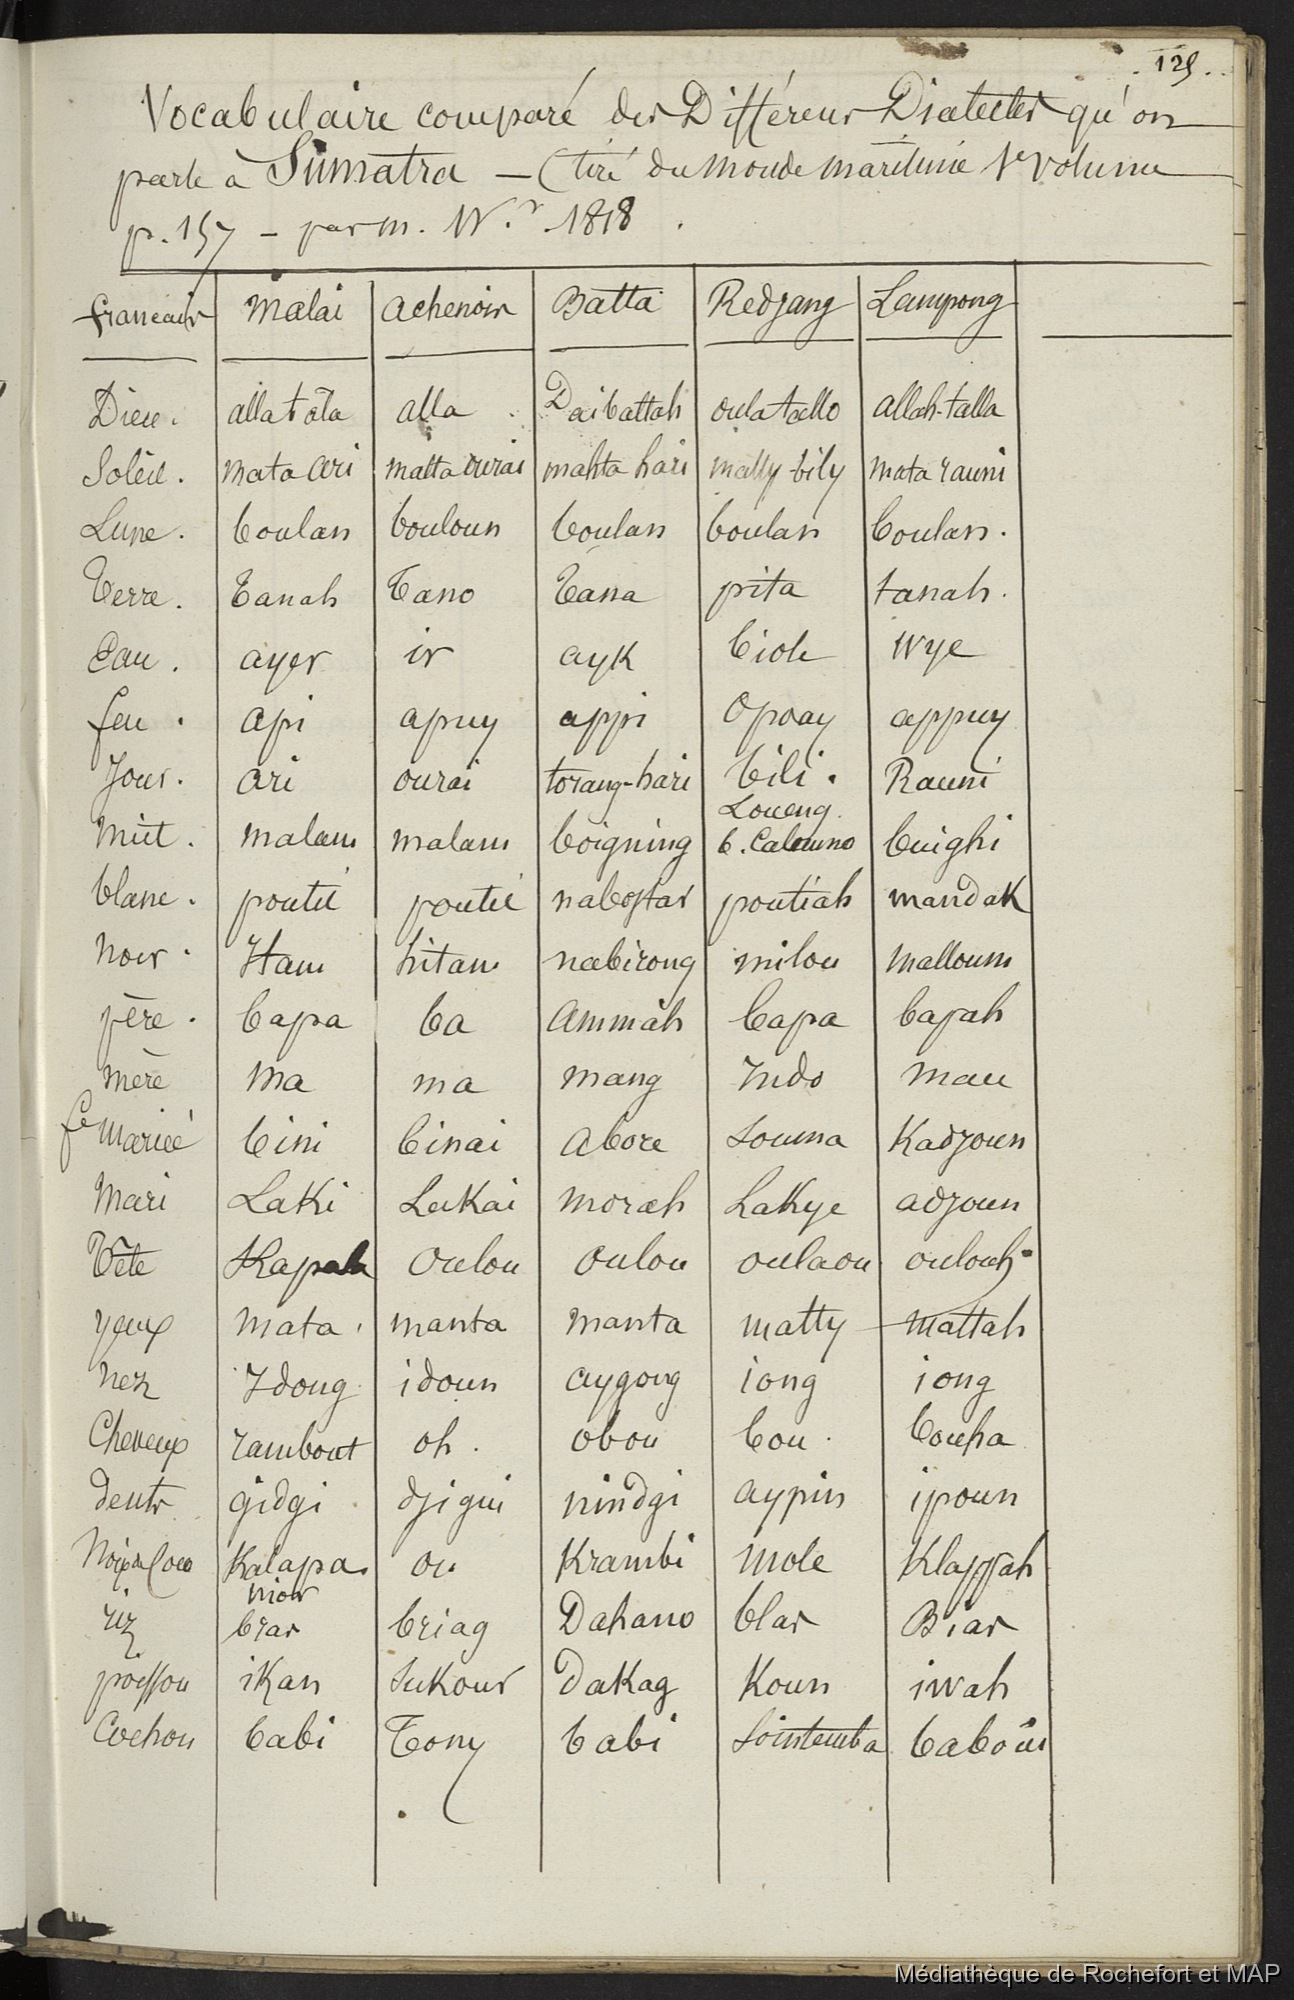 . 125 .
Vocabulaire comparé des Différens Dialectes qu'on
parle à Sumatra — (tiré du monde maritime 1e volume
p. 157 — par m. Wr. 1818 .
français malai achenois Batta Redjang Lampong
Dieu . allatāla alla . Daibattah oulatallo allah-talla
Soleil . mata ari matta ourai mahta hari matty bily mata rauni
Lune . boulan bouloun boulan boulan boulan .
Terre . tanah tano tana pita tanah .
Eau . ayer ir ayk biole wye
feu . api apuy appi opoay appuy
Jour . ari ourai torang-hari bili . Rauni
nuit . malam malam boigning Loueng b. Calemno buighi
blanc . poutié poutié nabottar poutiah mandak
noir . Itam hitam nabirong milou malloum
père . bapa ba ammah bapa bapah
mère ma ma mang Indo mau
fe mariée bini binai abore souma Kadjoun
Mari Laki Lakai morah Lakye adjoun
Tête Kapala oulou oulou oulaou oulouh
yeux mata . manta manta matty mattah
nez Idong idoun aygong iong iong
Cheveux rambout oh . obou bou . bouha
dents gidgi djigui nindgi aypin ipoun
Noix de Coco Kalapa. ou Krambi mole Klappah
nior
riz bras briag Dahano blas Bias
poisson ikan sukour dakag koun iwah
Cochon babi Tony babi sointemba baboui
Médiathèque de Rochefort et MAP